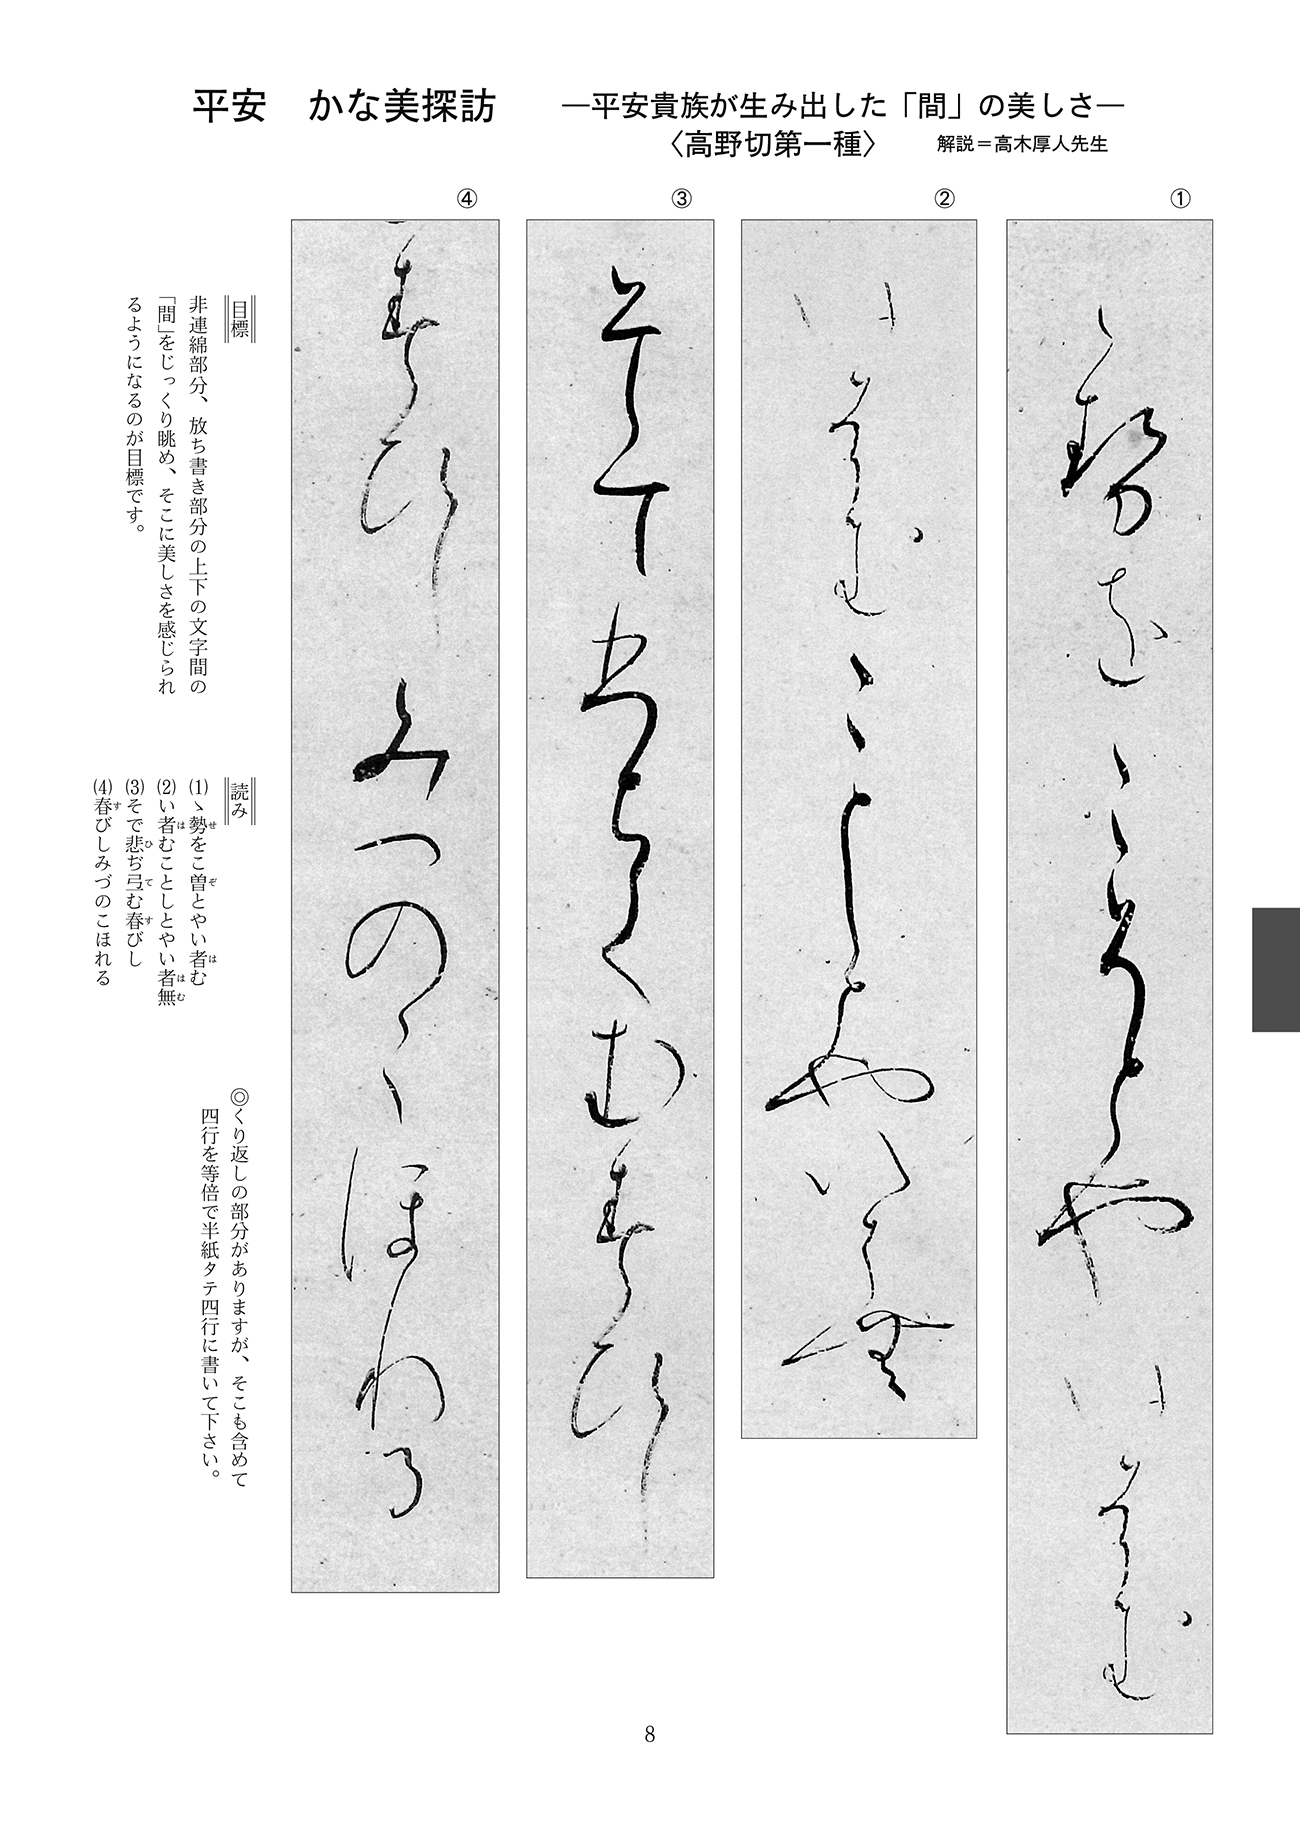 平安　かな美探訪
―平安貴族が生み出した「間」の美しさ―
〈高野切第一種〉
解説＝高木厚人先生
①
ゝ勢をこ曽とやい者む
②
い者むことしとやい者無
③
そて悲ち弖む春ひし
④
春ひしみつのこほれる
目標
非連綿部分、放ち書き部分の上下の文字間の
「間」をじっくり眺め、そこに美しさを感じられ
るようになるのが目標です。
読み
⑴ゝ勢をこ曽とやい者む
⑵い者むことしとやい者無
⑶そで悲ぢ弖む春びし
⑷春びしみづのこほれる
◎くり返しの部分がありますが、そこも含めて
四行を等倍で半紙タテ四行に書いて下さい。
8